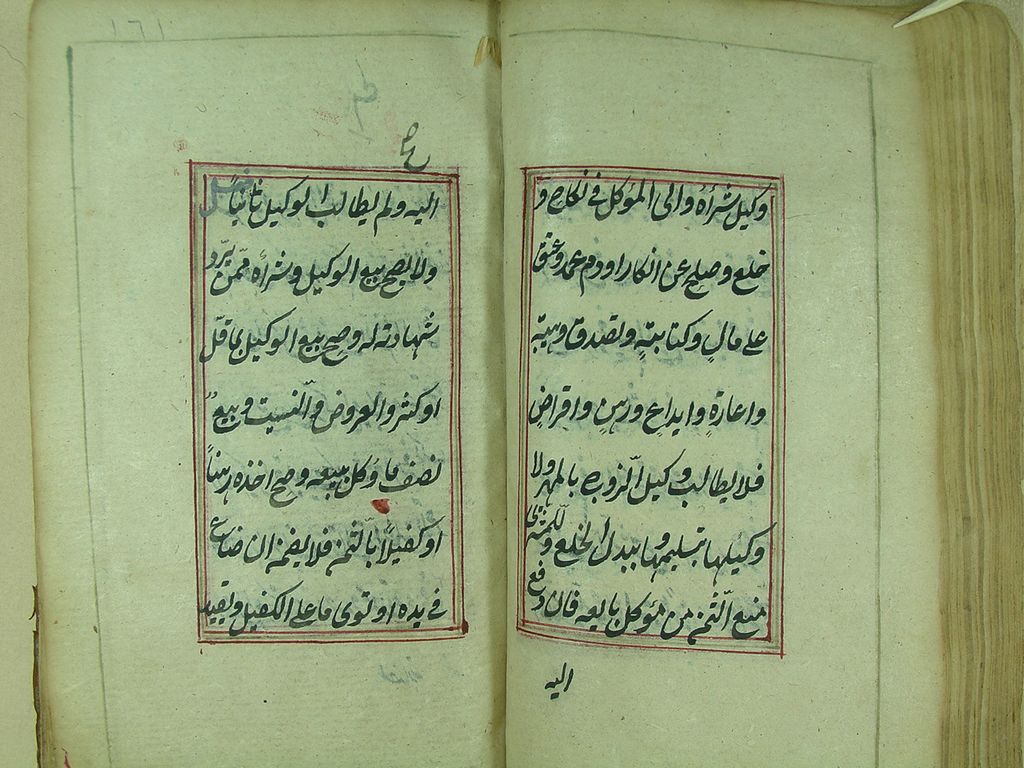 وكيل شرائه والى المؤكل في نكاح و
خلع وصلح عن انكار او دم عمد وعتق
على مالٍ وكتابتةٍ وتصدق وهبته
واعارةٍ وايداعٍ ورهنٍ واقراضٍ
فلا يطالب وكيل الزوج بالمهر ولا
وكيلها بتسليمها وببدل الخلع وللمشترى
منع الثّمن من مؤكل بايعه فان دفع
اليه
١٦١
اليه ولم يطالب الوكيل ثانياً
ولا يصح بيع الوكيل وشرأه ممّن تردّ
شهادته له وصح بيع الوكيل بما قلّ
او كثر والعروض والنسيت وبيع
نصف ما وكل ببيعه وصح اخذه رهناً
او كفيلاً بالثمن فلا يضمن ان ضاع
في يده او توى ما على الكفيل وتقييد